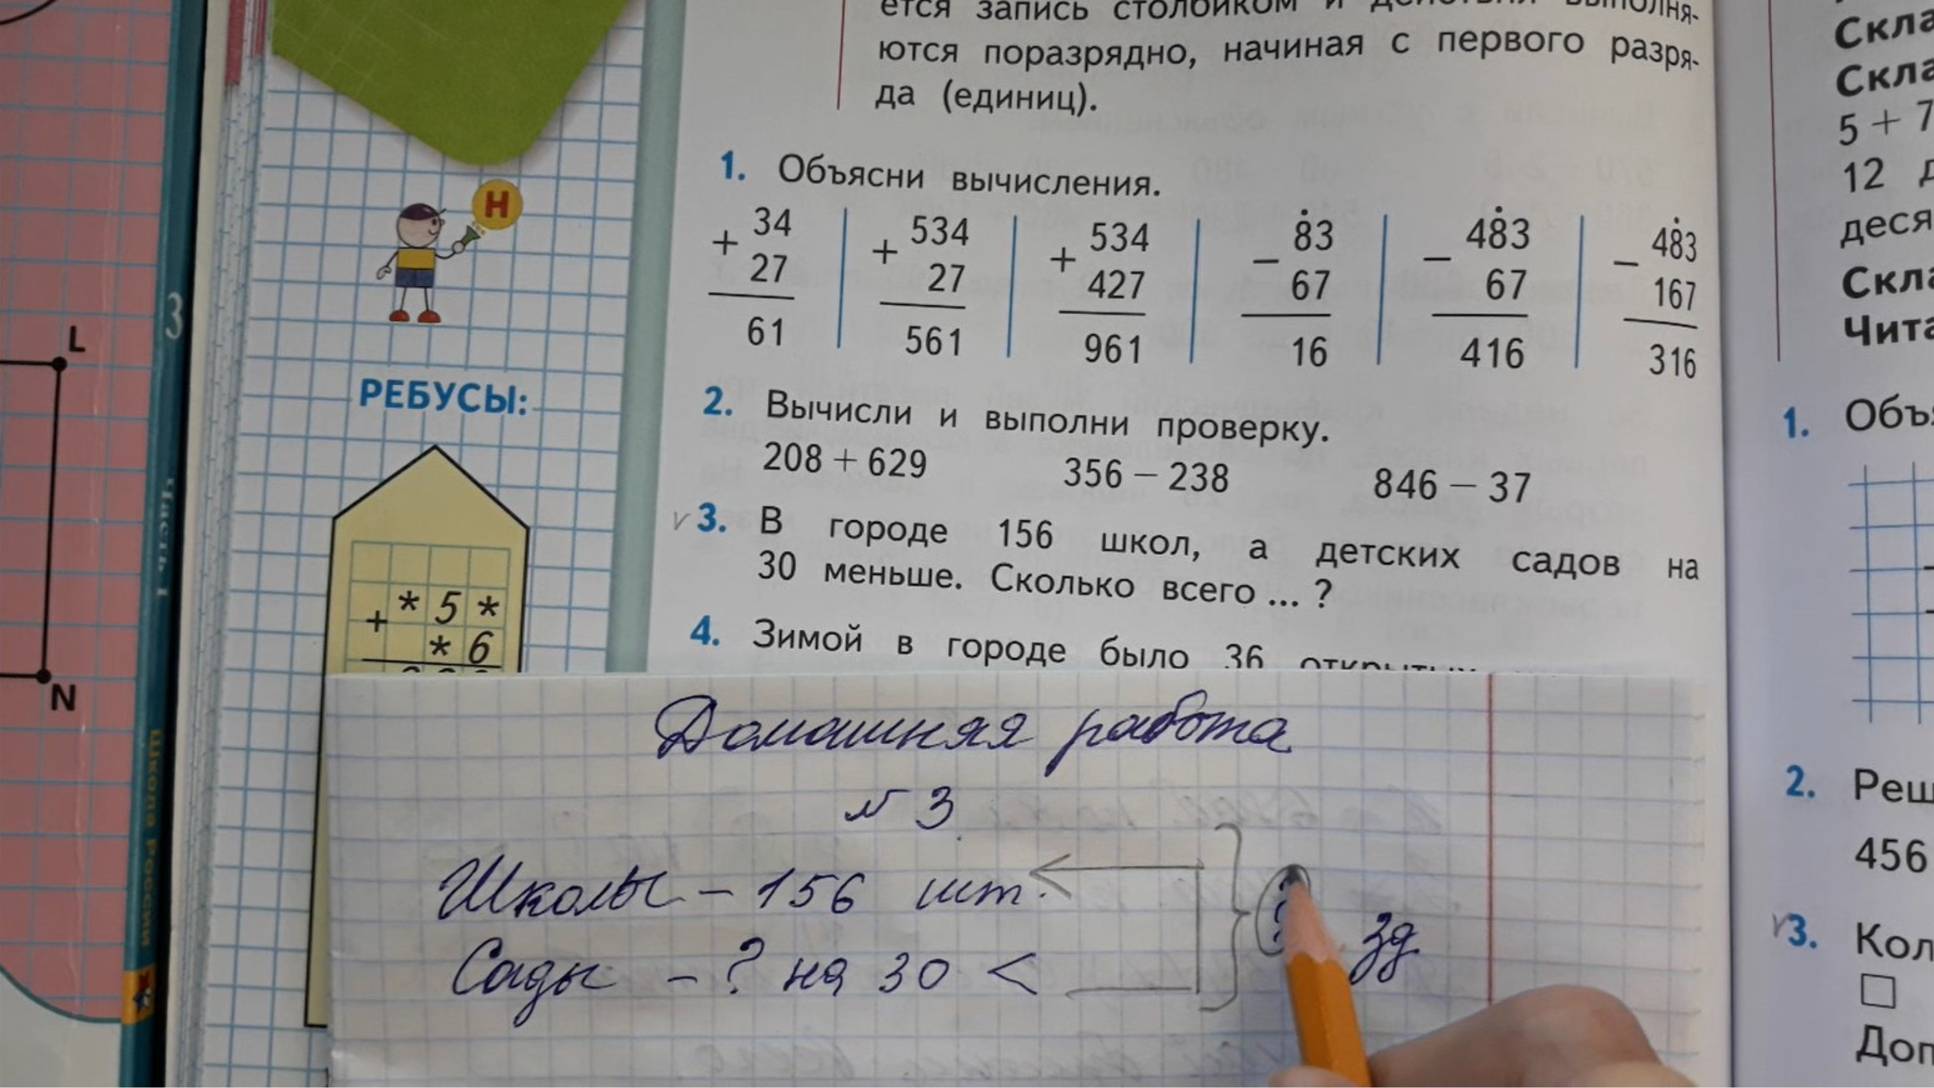 ется запись столбиком и действия выполня-
ются поразрядно, начиная с первого разря-
да (единиц).
1. Объясни вычисления.
+ 34
27
61
+ 534
27
561
+ 534
427
961
− 83
67
16
− 483
67
416
− 483
167
316
2. Вычисли и выполни проверку.
208 + 629 356 − 238 846 − 37
v 3. В городе 156 школ, а детских садов на
30 меньше. Сколько всего ... ?
4. Зимой в городе было 36
Н
РЕБУСЫ:
+ * 5 *
* 6
L
N
3
Часть 1
Школа России
Домашняя работа
№ 3
Школы – 156 шт.
Сады – ? на 30 <
? зд.
Скла
Скла
5 + 7
12 д
деся
Скла
Чита
1. Объя
2. Реш
456
v 3. Кол
□
Доп